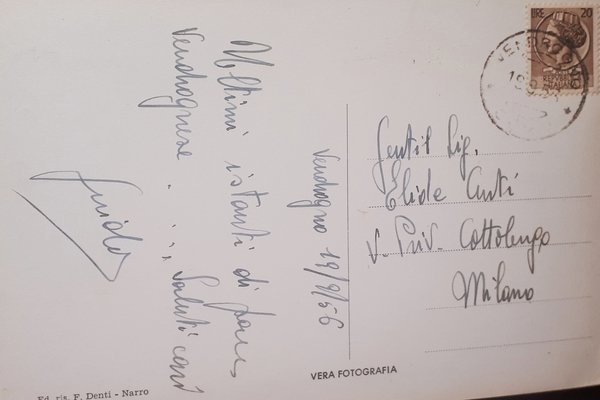 Ultimi istanti di pace
Vendrognese . . . . Saluti cari
Guido
Vendrogno 19/9/56
Gentil Sig.
Elide Curti
V. Priv. Cottolengo
Milano
LIRE 20
REPVBBLICA
ITALIANA
VENDROGNO
VERA FOTOGRAFIA
Ed. ris. F. Denti - Narro